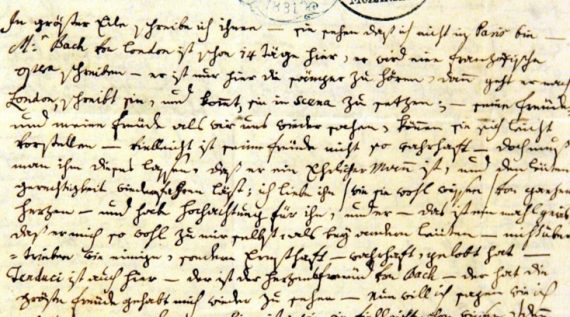 In gröster Eile schreibe ich ihnen — sie sehen daß ich nicht in Paris bin —
Mr: Bach von London ist schon 14 täge hier, er wird eine französische
opera schreiben — er ist nur hier die sänger zu hören, dann geht er nach
London, schreibt sie, und kommt, sie in scena zu setzen; — seine freüde,
und meine freüde als wir uns wieder sahen, können sie sich leicht
vorstellen — vielleicht ist seine freüde nicht so wahrhaft — doch muß
man ihm dieses lassen, daß er ein Ehrlicher Mann ist, und den leüten
gerechtigkeit wiederfahren läst; ich liebe ihn /wie sie wohl wissen/ von ganzen
herzen — und habe hochachtung für ihn, und er — das ist einmahl gewis
daß er mich so wohl zu mir selbst, als bey andern leüten — nicht über=
=trieben wie einige, sondern Ernsthaft — wahrhaft, gelobt hat —
Tenduci ist auch hier — der ist der herzensfreünd von Bach — der hat die
gröste freüde gehabt mich wieder zu sehen — Nun will ich sagen wie ich